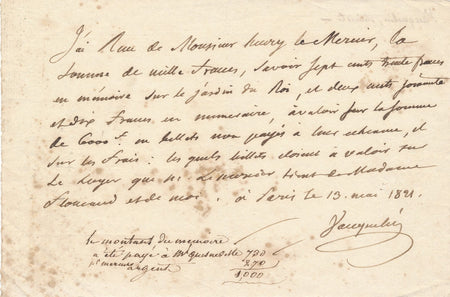 J'ai Reçu de Monsieur henry le Mercier, la
somme de mille francs, savoir sept cents trente francs
en mémoire sur le jardin du Roi, et deux cents soixante
et dix francs en numeraire, à valoir sur la somme
de 6000 f en billets non payés a leur echeance, et
sur les frais : les quels billets etoient à valoir sur
Le Loyer que Mr. Le mercier tient de Madame
et de moi. à Paris le 13 mai 1821.
Jacquelin
le montant du mémoire
a été payé à Mr Quesneville 730
pr mercier argent 270
1,000